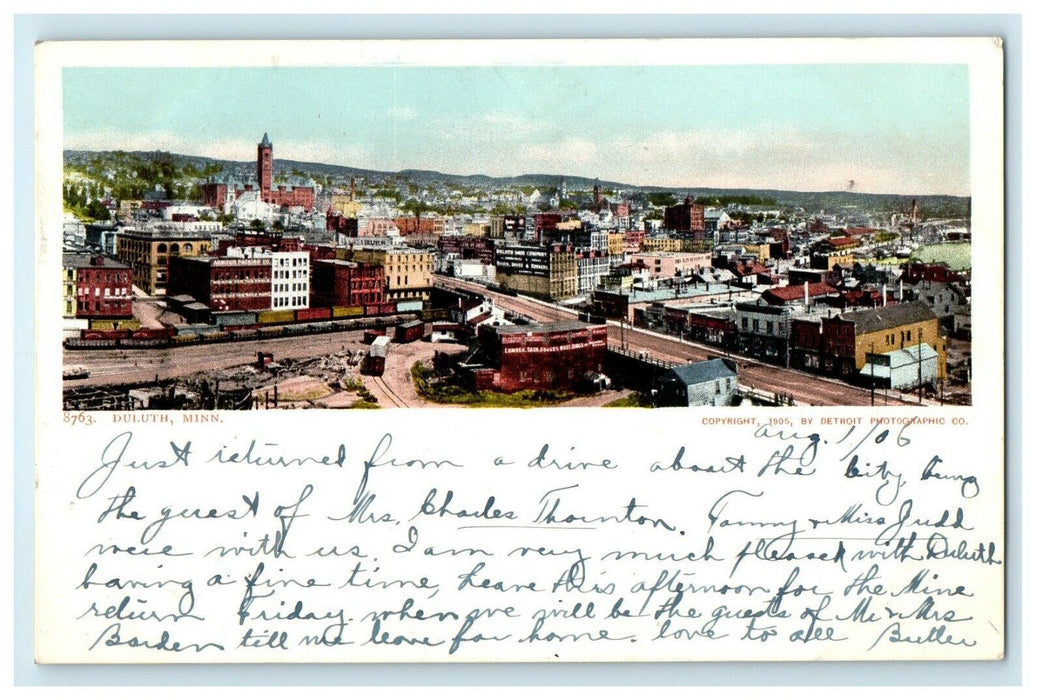 ARMOUR PACKING CO.
DULUTH SHOE COMPANY
8763. DULUTH, MINN.
COPYRIGHT, 1905, BY DETROIT PHOTOGRAPHIC CO.
Aug. 1/06
Just returned from a drive about the City being
the guest of Mrs. Charles Thornton. Tammy & Miss Judd
were with us. I am very much pleased with Duluth
having a fine time, leave this afternoon for the Mine
return Friday when we will be the guests of Mr & Mrs
Barden till we leave for home. love to all Butler